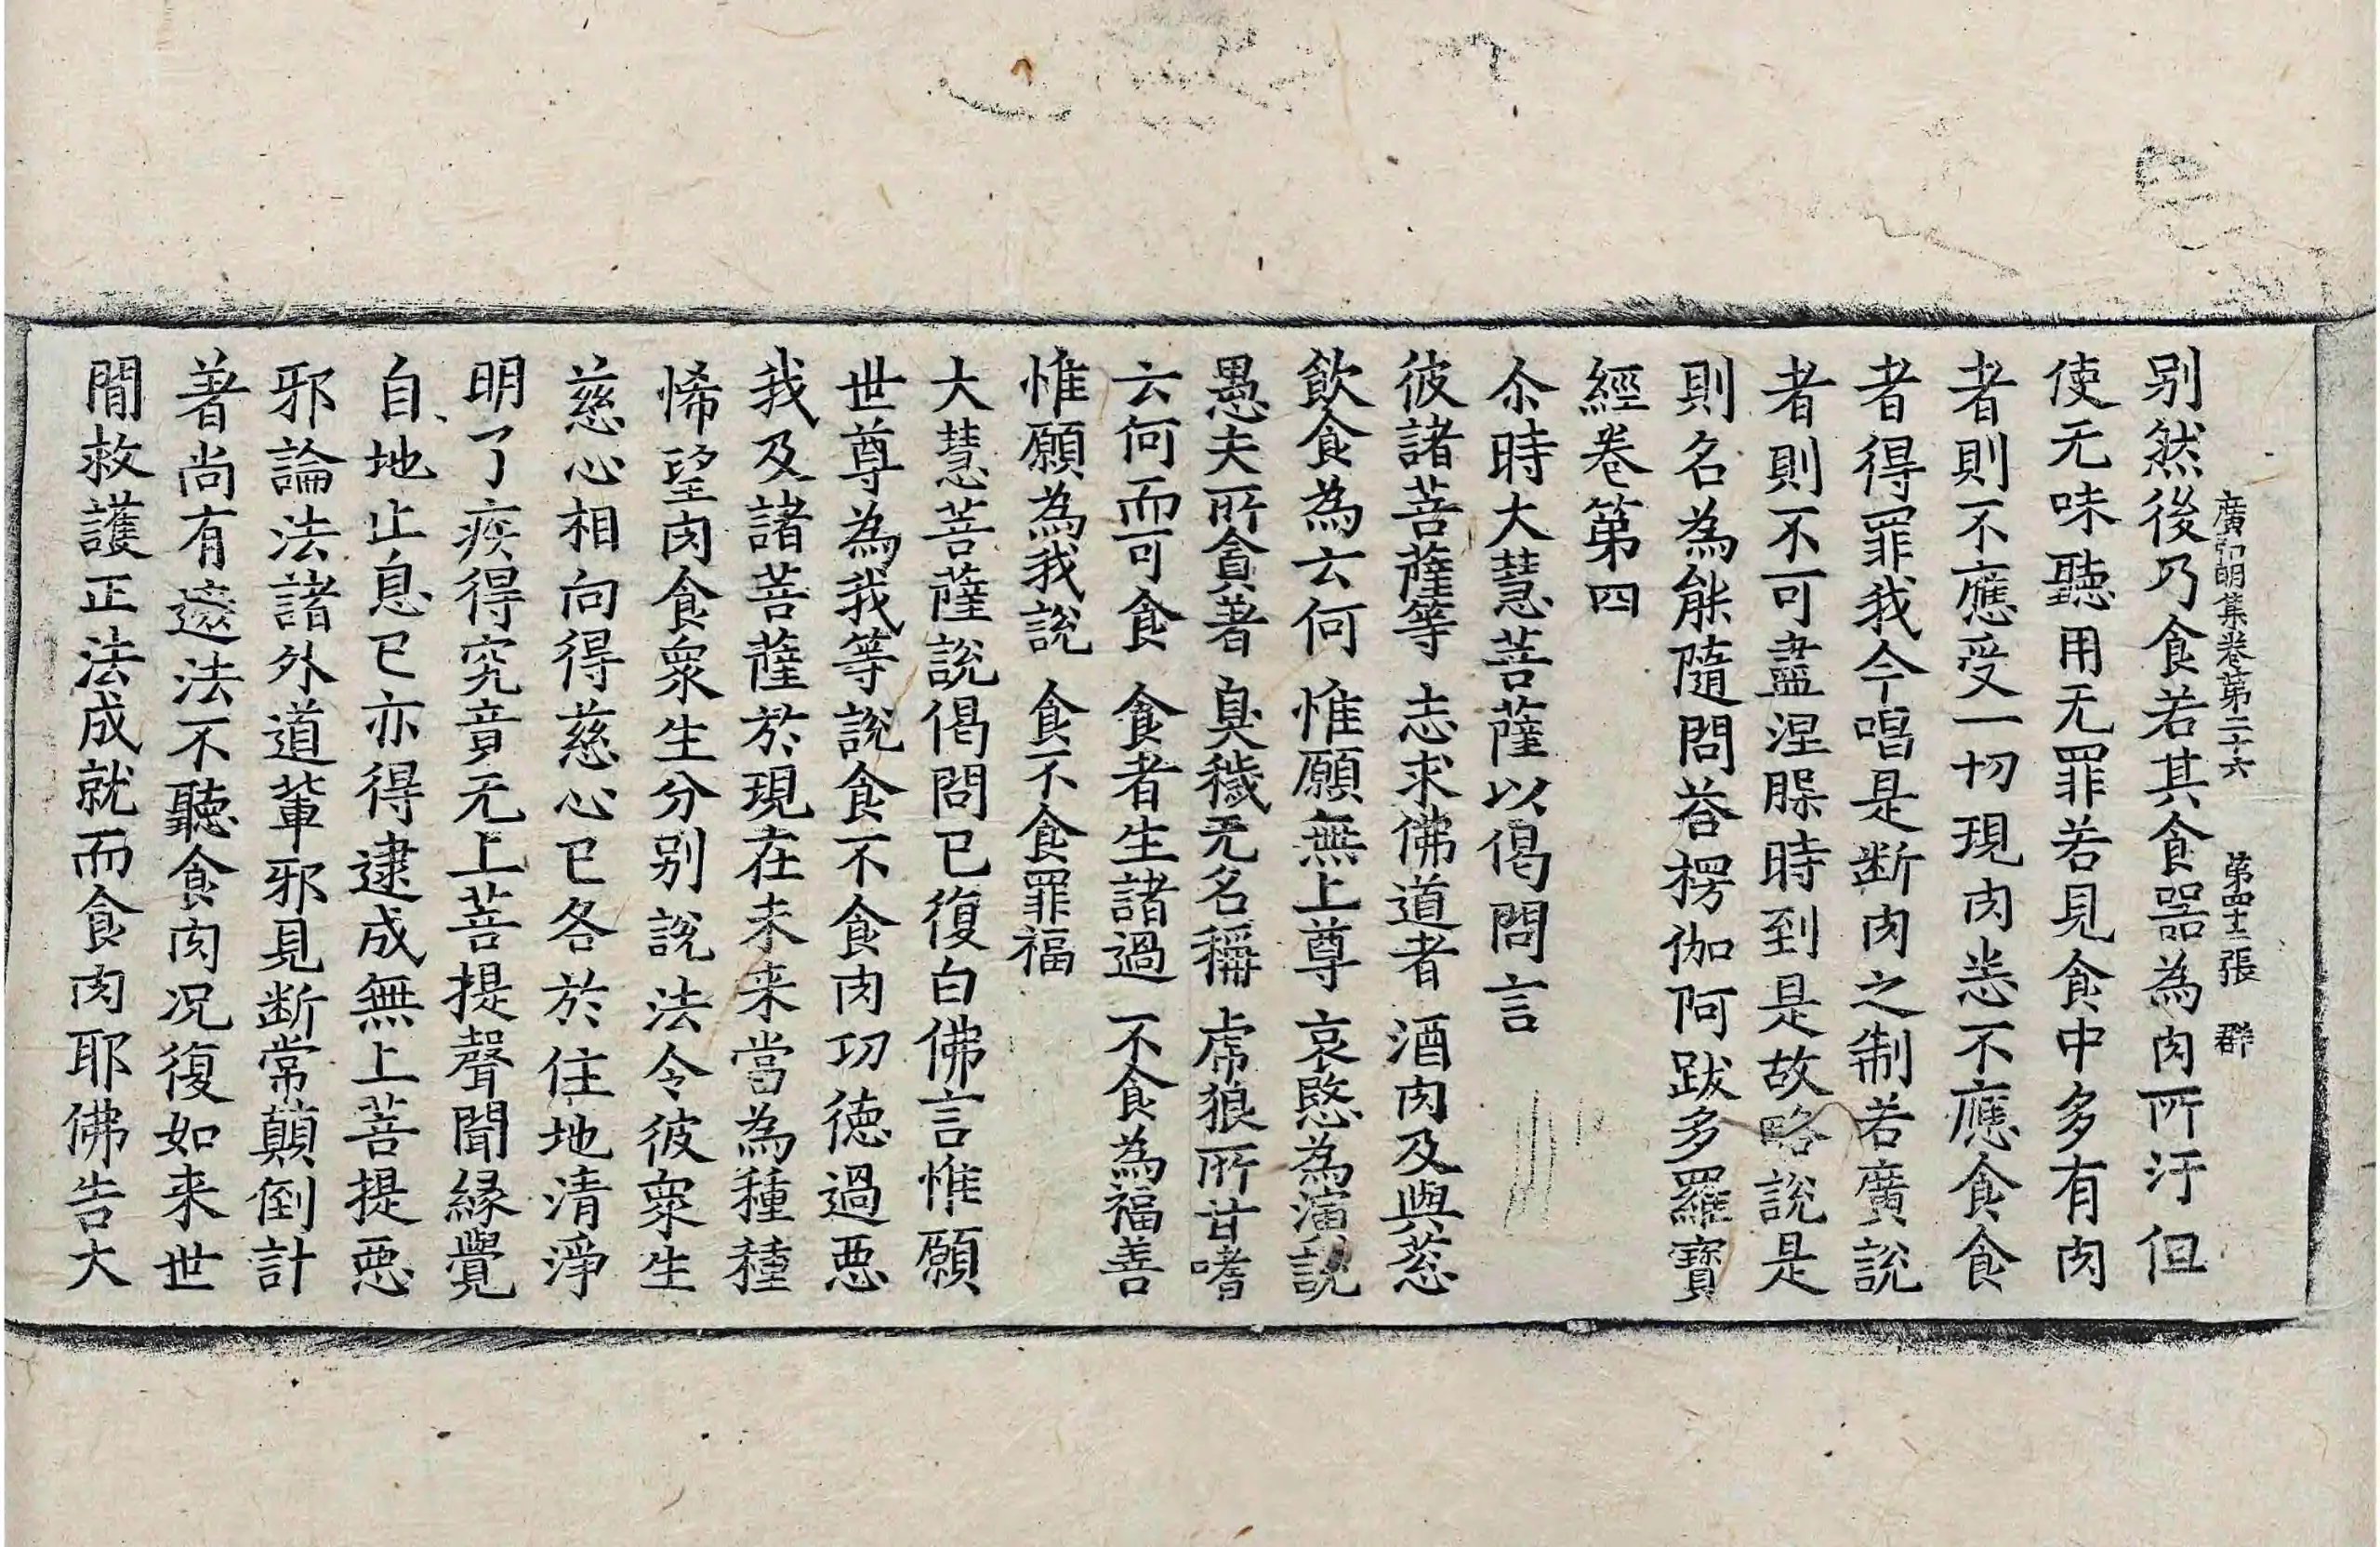 廣弘明集卷第二十六　第四十二張　群
别然後乃食若其食器為肉所汙但
使无味聽用无罪若見食中多有肉
者則不應受一切現肉恙不應食食
者得罪我今唱是断肉之制若廣說
者則不可盡涅槃時到是故略說是
則名為能隨問荅楞伽阿跋多羅寶
經卷第四
尒時大慧菩薩以偈問言
彼諸菩薩等　志求佛道者　酒肉及與葱
飲食為云何　惟願無上尊　哀愍為演說
愚夫所貪著　臭穢无名稱　虎狼所甘嗜
云何而可食　食者生諸過　不食為福善
惟願為我說　食不食罪福
大慧菩薩說偈問已復白佛言惟願
世尊為我等說食不食肉功德過惡
我及諸菩薩於現在未来當為種種
悕望肉食衆生分别說法令彼衆生
慈心相向得慈心已各於住地清淨
明了疾得究竟无上菩提聲聞緣覺
自地止息已亦得逮成無上菩提惡
邪論法諸外道輩邪見断常顛倒計
著尚有遮法不聽食肉况復如来世
間救護正法成就而食肉耶佛告大